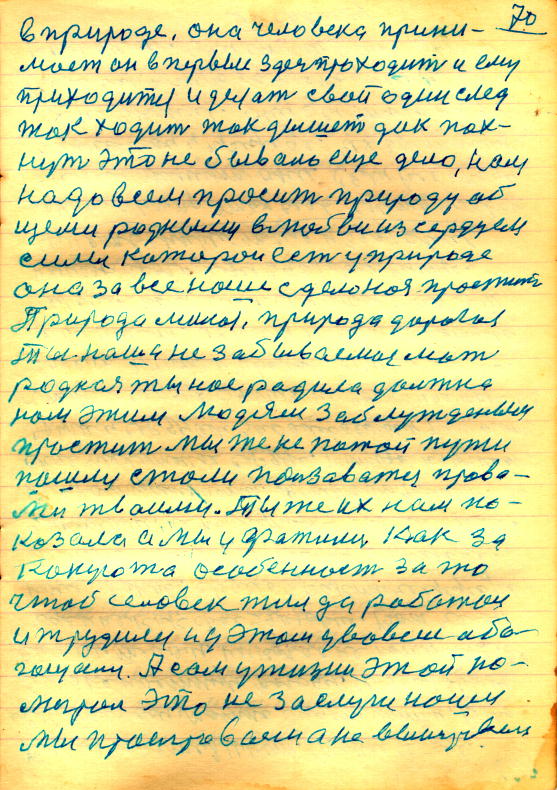 70
в природе, она человека прини-
моет он в первые здес проходит и ему
приходится и делат свой один след
так ходит так дышет дак пах-
нут это не бывало еще дело, нам
надо всем просит природу об
щеми родными в любви из сердцем
сили которои ест у природе
она за все наше сделоноя простит
Природа милоя, природа дорогая
Ты наша не забываемая мат
родная ты нас радила должна
нам этим людям заблужденым
простит мы же не потой пути
пошли стали ползоватся права-
ми твоими. Ты же их нам по-
козала а мы ухватилис как за
какуюта особенност за то
чтоб человек жил да работал
и трудился и у этом увовсем аба-
гощали. А сам у жизни этой по-
мирал это не заслуги наши
мы проигроваем а не выигроваем